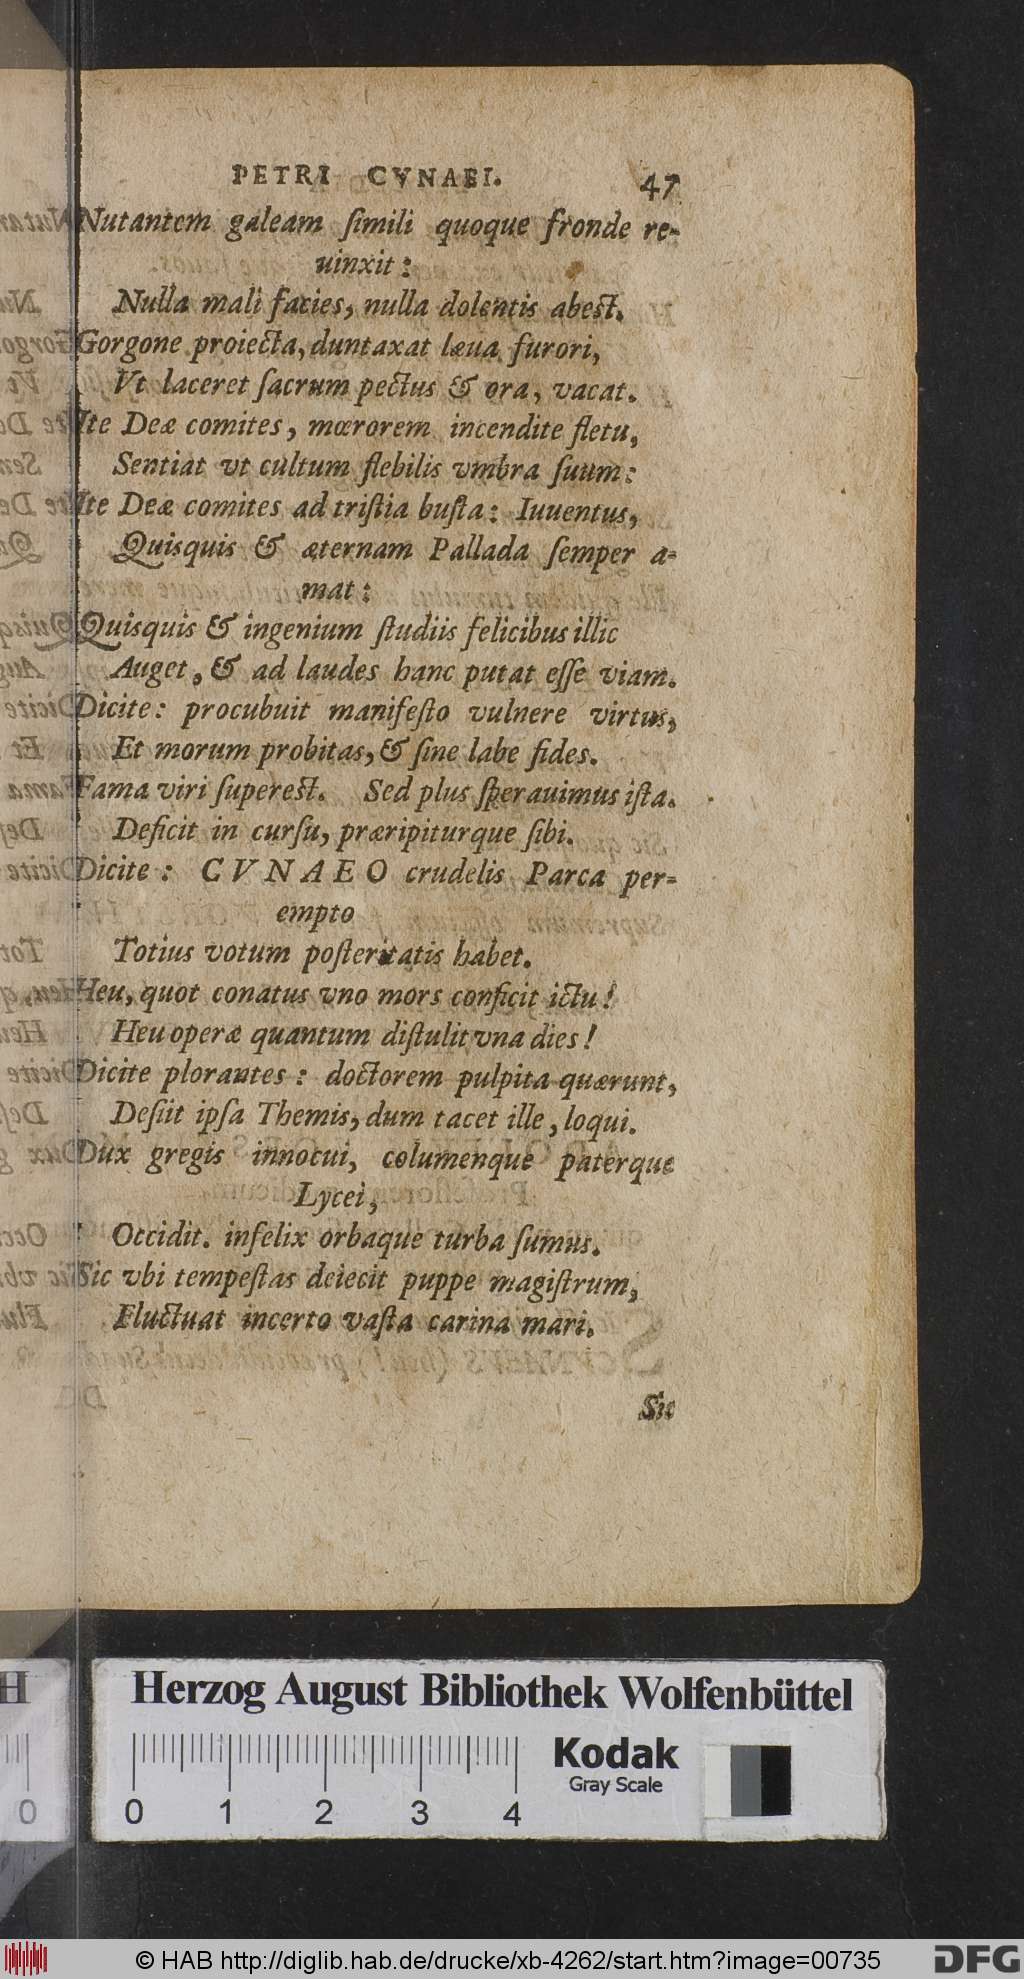 PETRI CVNAEI. 47
Nutantem galeam ſimili quoque fronde re-
uinxit:
Nulla mali facies, nulla dolentis abest.
Gorgone proiecta, duntaxat læua furori,
Vt laceret ſacrum pectus & ora, vacat.
Ite Deæ comites, mœrorem incendite fletu,
Sentiat vt cultum flebilis vmbra ſuum:
Ite Deæ comites ad triſtia buſta: Iuuentus,
Quisquis & æternam Pallada ſemper a-
mat:
Quisquis & ingenium ſtudiis felicibus illic
Auget, & ad laudes hanc putat eſſe viam.
Dicite: procubuit manifeſto vulnere virtus,
Et morum probitas, & ſine labe fides.
Fama viri ſuperest. Sed plus ſperauimus iſta.
Deficit in curſu, præripiturque ſibi.
Dicite: CVNAEO crudelis Parca per-
empto
Totius votum poſteritatis habet.
Heu, quot conatus vno mors conficit ictu!
Heu operæ quantum diſtulit vna dies!
Dicite plorantes: doctorem pulpita quærunt,
Deſiit ipſa Themis, dum tacet ille, loqui.
Dux gregis innocui, columenque paterque
Lycei,
Occidit. infelix orbaque turba ſumus.
Sic vbi tempeſtas deiecit puppe magiſtrum,
Fluctuat incerto vaſta carina mari.
Sic
Herzog August Bibliothek Wolfenbüttel
Kodak
Gray Scale
0 0 1 2 3 4
© HAB http://diglib.hab.de/drucke/xb-4262/start.htm?image=00735 DFG